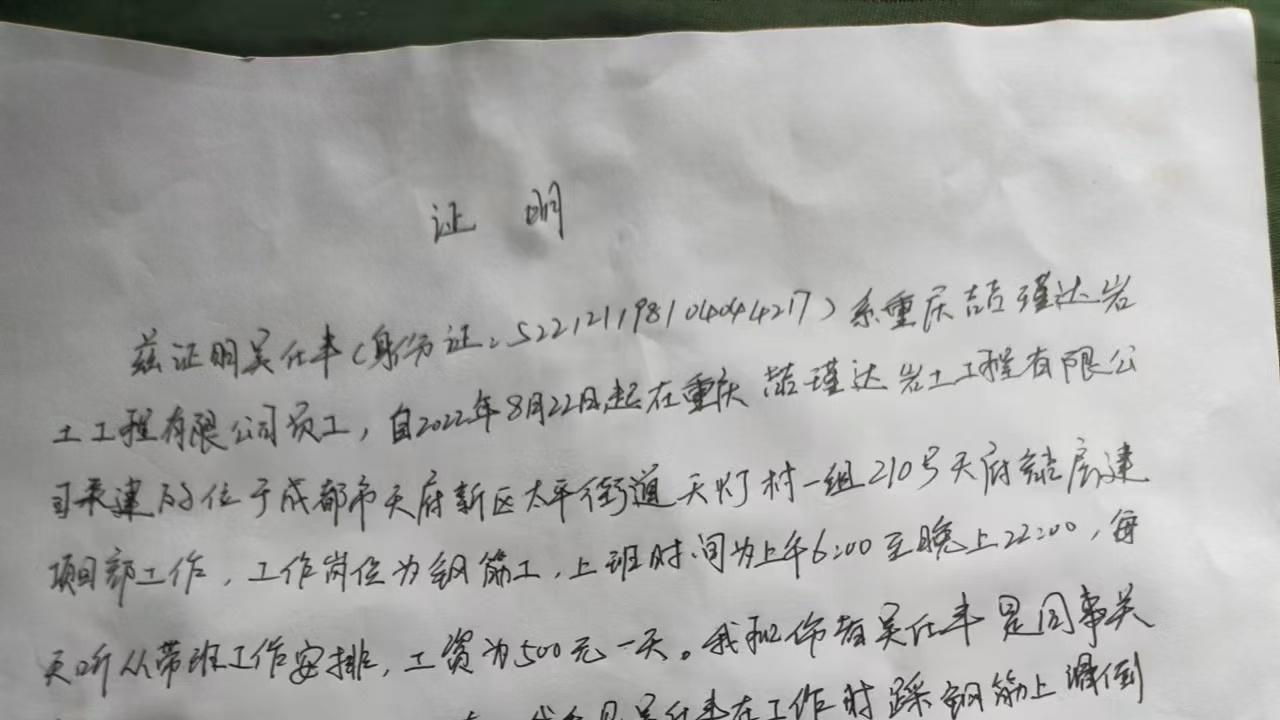 证 明
兹证明吴仕丰（身份证：522121198104044217）系重庆喆瑾达岩
土工程有限公司员工，自2022年8月22日起在重庆喆瑾达岩土工程有限公
司承建的位于成都市天府新区太平街道天灯村一组210号天府 建
项目部工作，工作岗位为钢筋工，上班时间为上午6:00至晚上22:00，每
天听从带班工作安排，工资为500元一天。我和 吴仕丰是同事关
吴仕丰在工作时踩钢筋上滑倒